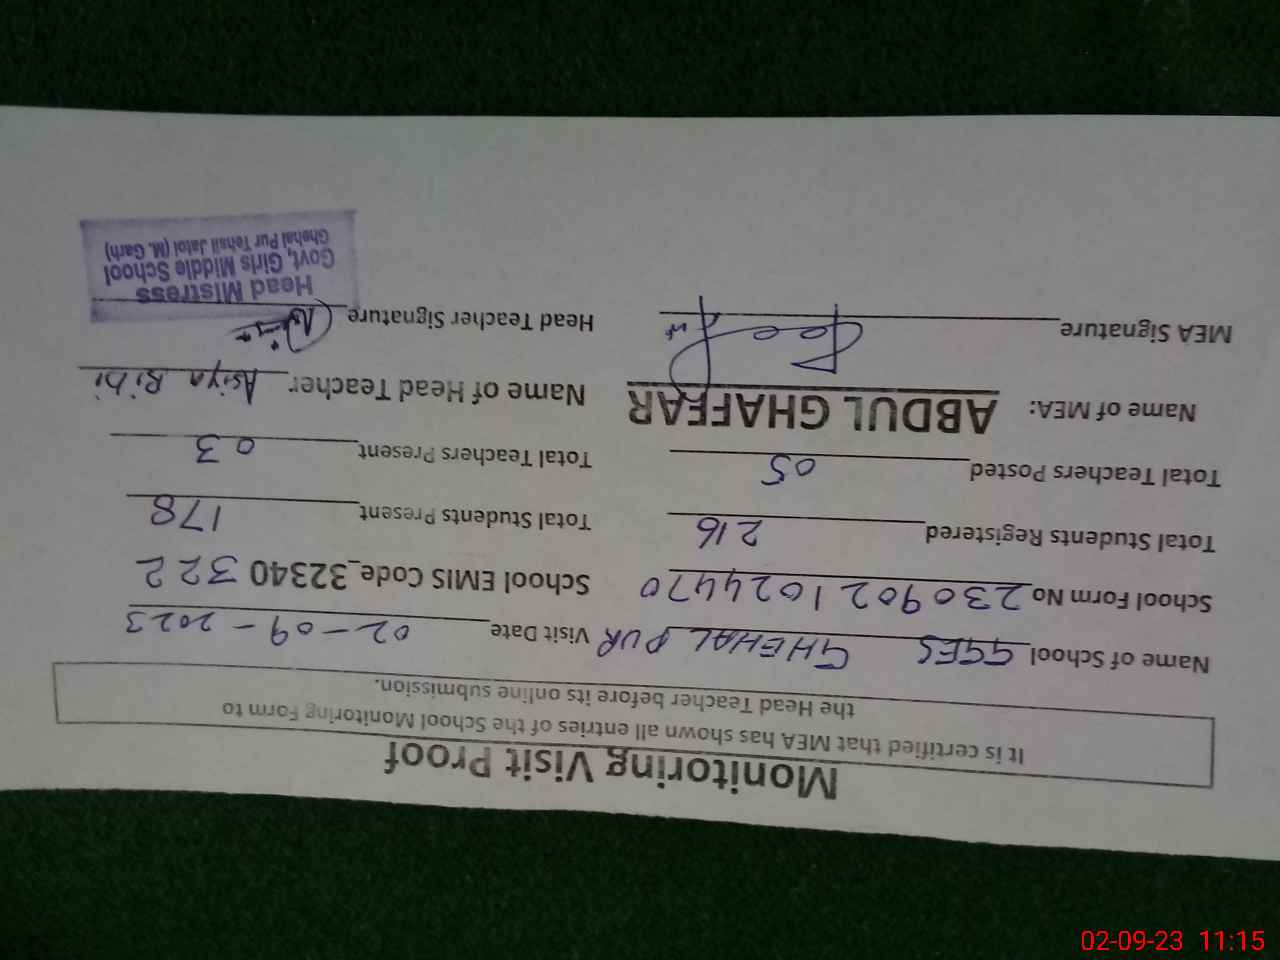 Monitoring Visit Proof
It is certified that MEA has shown all entries of the School Monitoring Form to
the Head Teacher before its online submission.
Name of School GGES GHEHAL PUR Visit Date 02-09-2023
School Form No 2309021024470 School EMIS Code_32340 322
Total Students Registered 216 Total Students Present 178
Total Teachers Posted 05 Total Teachers Present 03
Name of MEA: ABDUL GHAFFAR Name of Head Teacher Asiya Bibi
MEA Signature Head Teacher Signature
Head Mistress
Govt, Girls Middle School
Ghehal Pur Tehsil Jatoi (M. Garh)
02-09-23 11:15